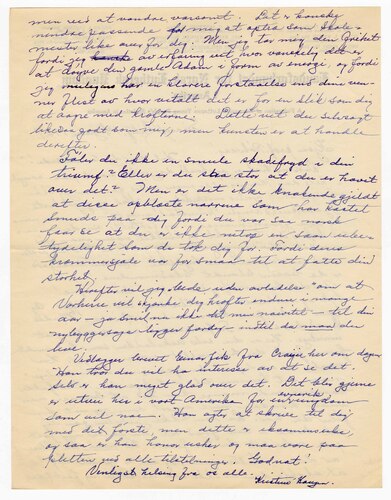 men ved at vandre varsomt. Det er kanske
mindre passende for mig at optræ som skole-
mester like over for dig. Men jeg tar mig den frihet
fordi jeg av erfaring vet hvor vanskelig det er
at døyve den gamle Adam i form av energi, og fordi
jeg muligens har en klarere forstaaelse end dine ven-
ner flest av hvor vitalt det er for en slik som dig
at øre med kræfterne. Dette vet du selvsagt
likesaa godt som mig, men kunsten er at handle
derefter.
Føler du ikke en smule skadefryd i din
triumf? Eller er du saa stor at du er hævet
over det? Men er det ikke knakende gjildt
at disse opblaaste narrene som har kastet
smuds paa dig fordi du var saa norsk
faar se at du er ikke netop en saan ube-
tydelighet som de tok dig for. Fordi deres
kræmmersjæle var for smaa til at fatte din
storhet.
Herefter vil jeg stede uden avladelse om at
Vorherre vil skjænke dig kræfter endnu i mange
aar — ja smil nu ikke det mer naivt — til din
nybyggersaga ligger færdig — indtil da maa du
leve.
Vedlagger brevet Einar fik fra Craigie her om dagen
Han tror du vil ha interesse av at se det.
Selv er han meget glad over det. Det blir gjerne
er uterii her i vort Amerika for en ungdom
som vil noe. Han agter at skrive til dig
med det første, men dette er eksamensuke,
og saa er han honor usher og maa være paa
pletten ved alle tilstelninger. Godnat!
Venligst hilsing fra os alle.
Kristine Haugen.